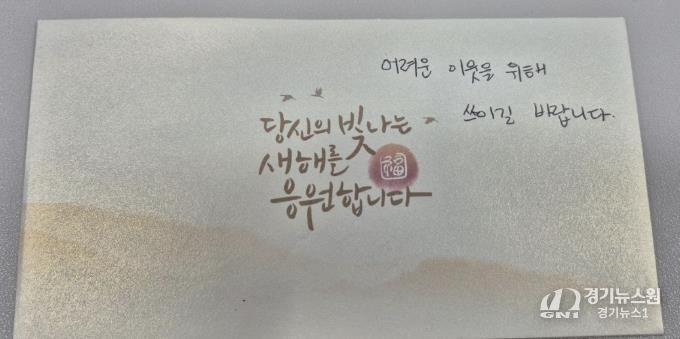 어려운 이웃을 위해
쓰이길 바랍니다.
당신의 빛나는
새해를
福
응원합니다
경기뉴스원
GNI
경기뉴스1